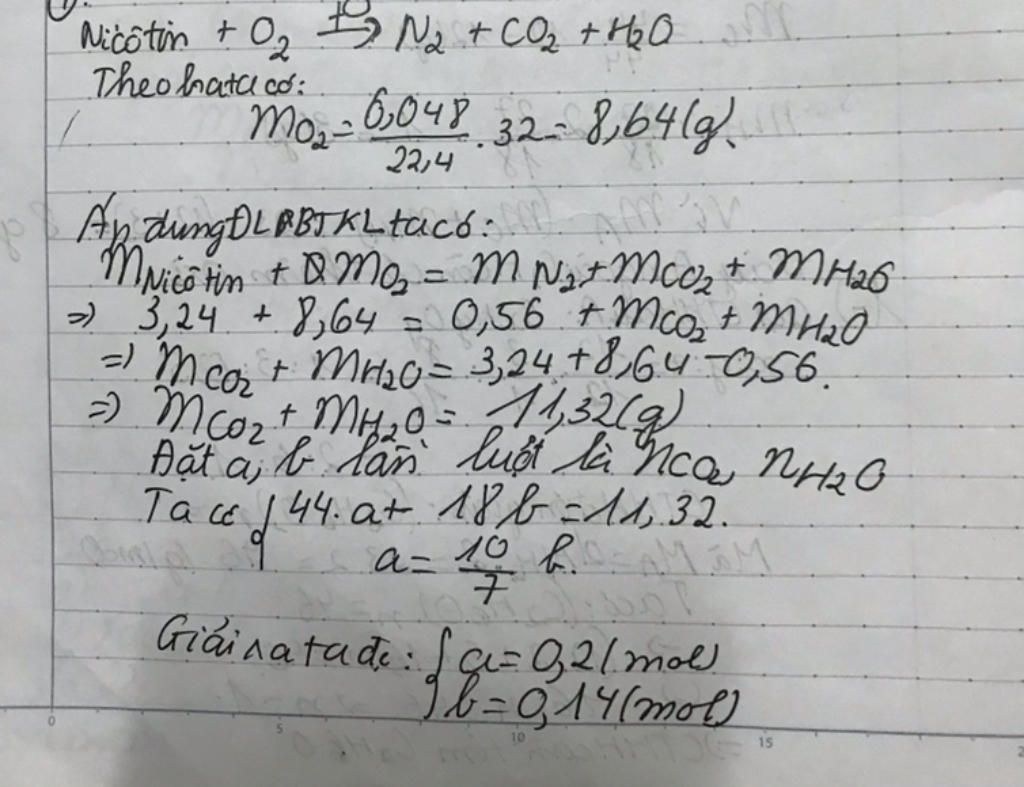 Nicôtin + O2 → N2 + CO2 + H2O
Theo bài ta có:
mO2 = 6,048/22,4 . 32 = 8,64(g)
Áp dụng ĐLBTKL ta có:
mNicôtin + mO2 = mN2 + mCO2 + mH2O
=> 3,24 + 8,64 = 0,56 + mCO2 + mH2O
=> mCO2 + mH2O = 3,24 + 8,64 - 0,56.
=> mCO2 + mH2O = 11,32(g)
Đặt a, b lần lượt là nCO2, nH2O
Ta có { 44.a + 18b = 11,32.
a = 10/7 b.
Giải ra ta đc: { a = 0,2(mol)
b = 0,14(mol)
0 5 10 15